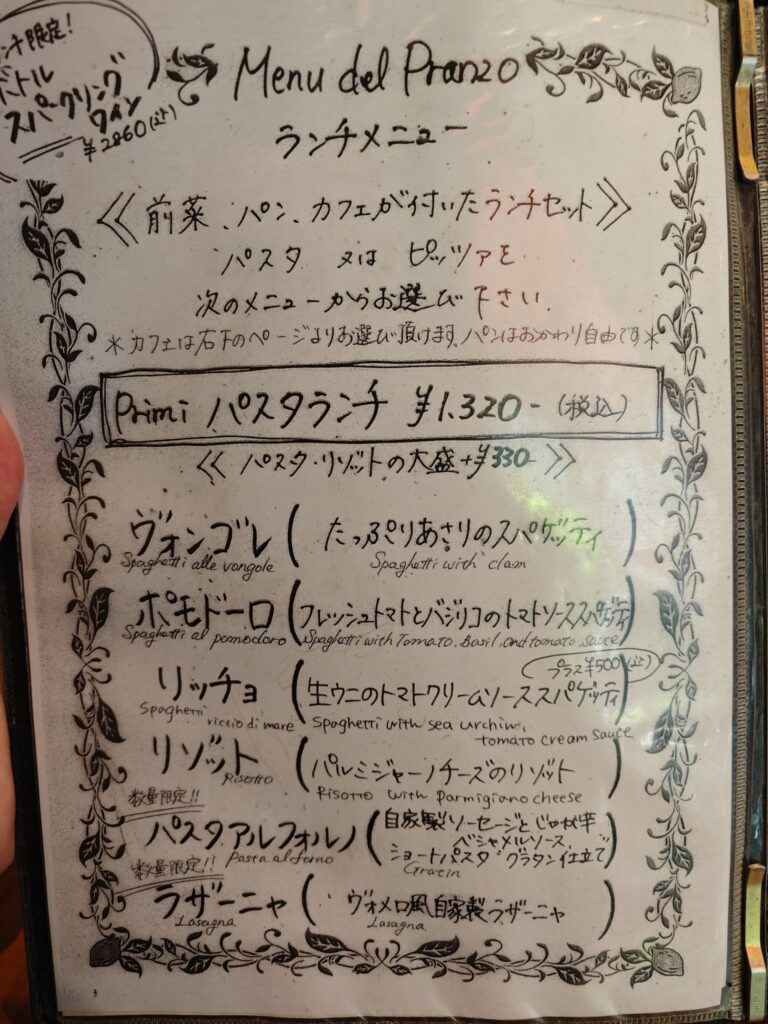 ンチ限定!
ボトル
スパークリング
ワイン
¥2860(込)
Menu del Pranzo
ランチメニュー
≪前菜、パン、カフェが付いたランチセット≫
パスタ 又は ピッツァを
次のメニューからお選び下さい.
*カフェは右下のページよりお選び頂けます。パンはおかわり自由です*
Primi パスタランチ ¥1.320-(税込)
≪パスタ・リゾットの大盛+¥330≫
ヴォンゴレ (たっぷりあさりのスパゲッティ)
Spaghetti alle vongole Spaghetti with clam
ポモドーロ (フレッシュトマトとバジリコのトマトソーススパゲッティ)
Spaghetti al pomodoro Spaghetti with Tomato, Basil, and tomato, sauce
プラス¥500(込)
リッチョ (生ウニのトマトクリームソーススパゲッティ)
Spaghetti riccio di mare Spaghetti with sea urchin, tomato cream sauce
リゾット (パルミジャーノチーズのリゾット)
Risotto Risotto with parmigiano cheese
数量限定!!
パスタアルフォルノ (自家製ソーセージとじゃが芋
ベシャメルソース
ショートパスタ グラタン仕立て)
Pasta al forno Gratin
数量限定!!
ラザーニャ (ヴォメロ風自家製ラザーニャ)
Lasagna Lasagna